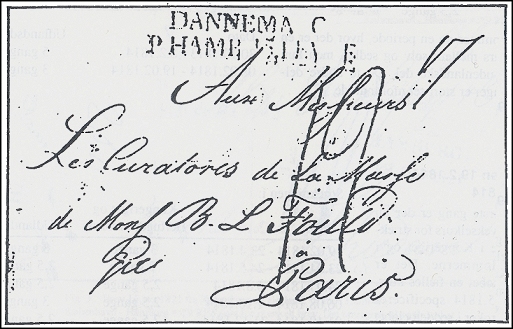 DANNEMA C
P HAMB E
Aux Messieurs
Les Curatores de La Masse
de Mons B. L Fould
à
Paris